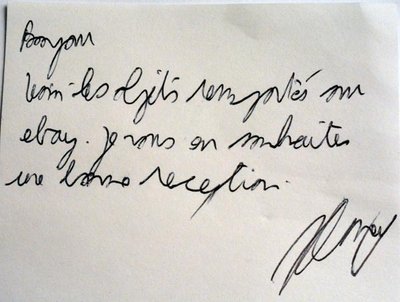 Bonjour
Voici les objets remportés sur
ebay. Je vous en souhaites
une bonne reception.